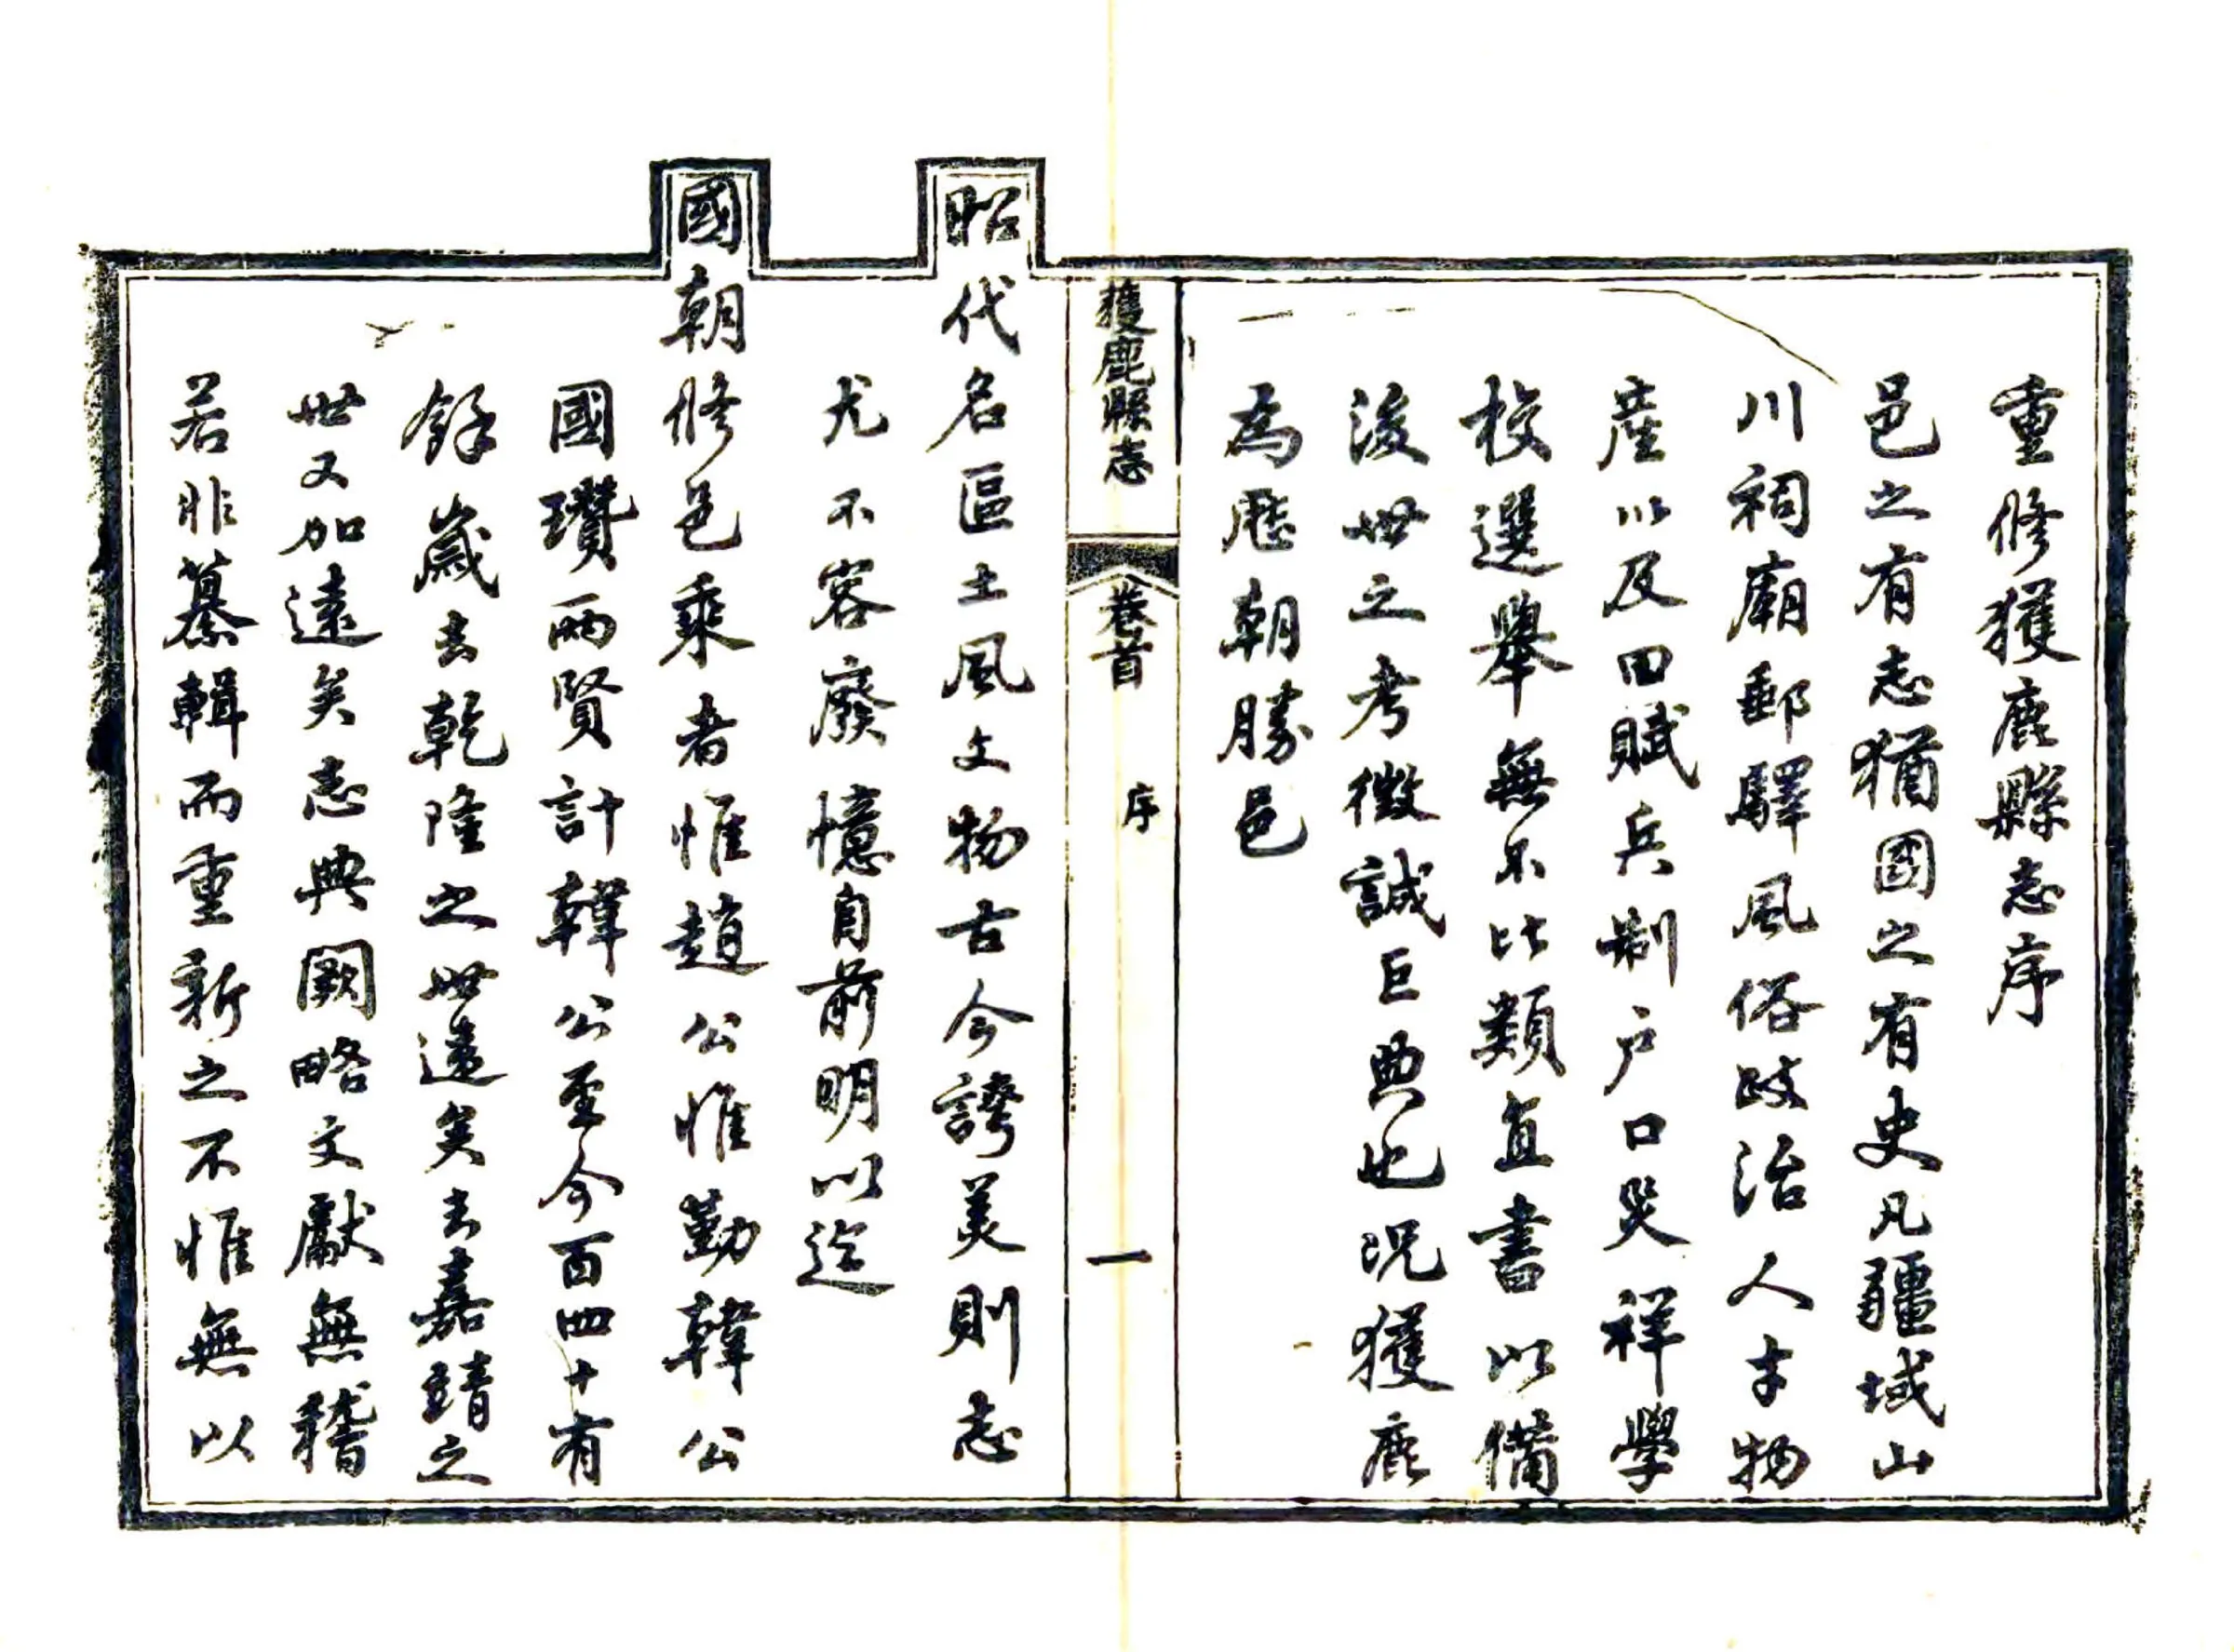 重修獲鹿縣志序
邑之有志猶國之有史凡疆域山
川祠廟郵驛風俗政治人才物
產以及田賦兵制户口災祥學
校選舉無不比類直書以備
後世之考徵誠巨典也況獲鹿
為歷朝勝邑
獲鹿縣志
卷首
序
一
昭代名區土風文物古今誇美則志
尤不容廢憶自前明以迄
國朝修邑乘者惟趙公惟勤韓公
國瓚兩賢計韓公至今百四十有
餘歲去乾隆之世遠矣去嘉靖之
世又加遠矣志典闕略文獻無稽
若非纂輯而重新之不惟無以